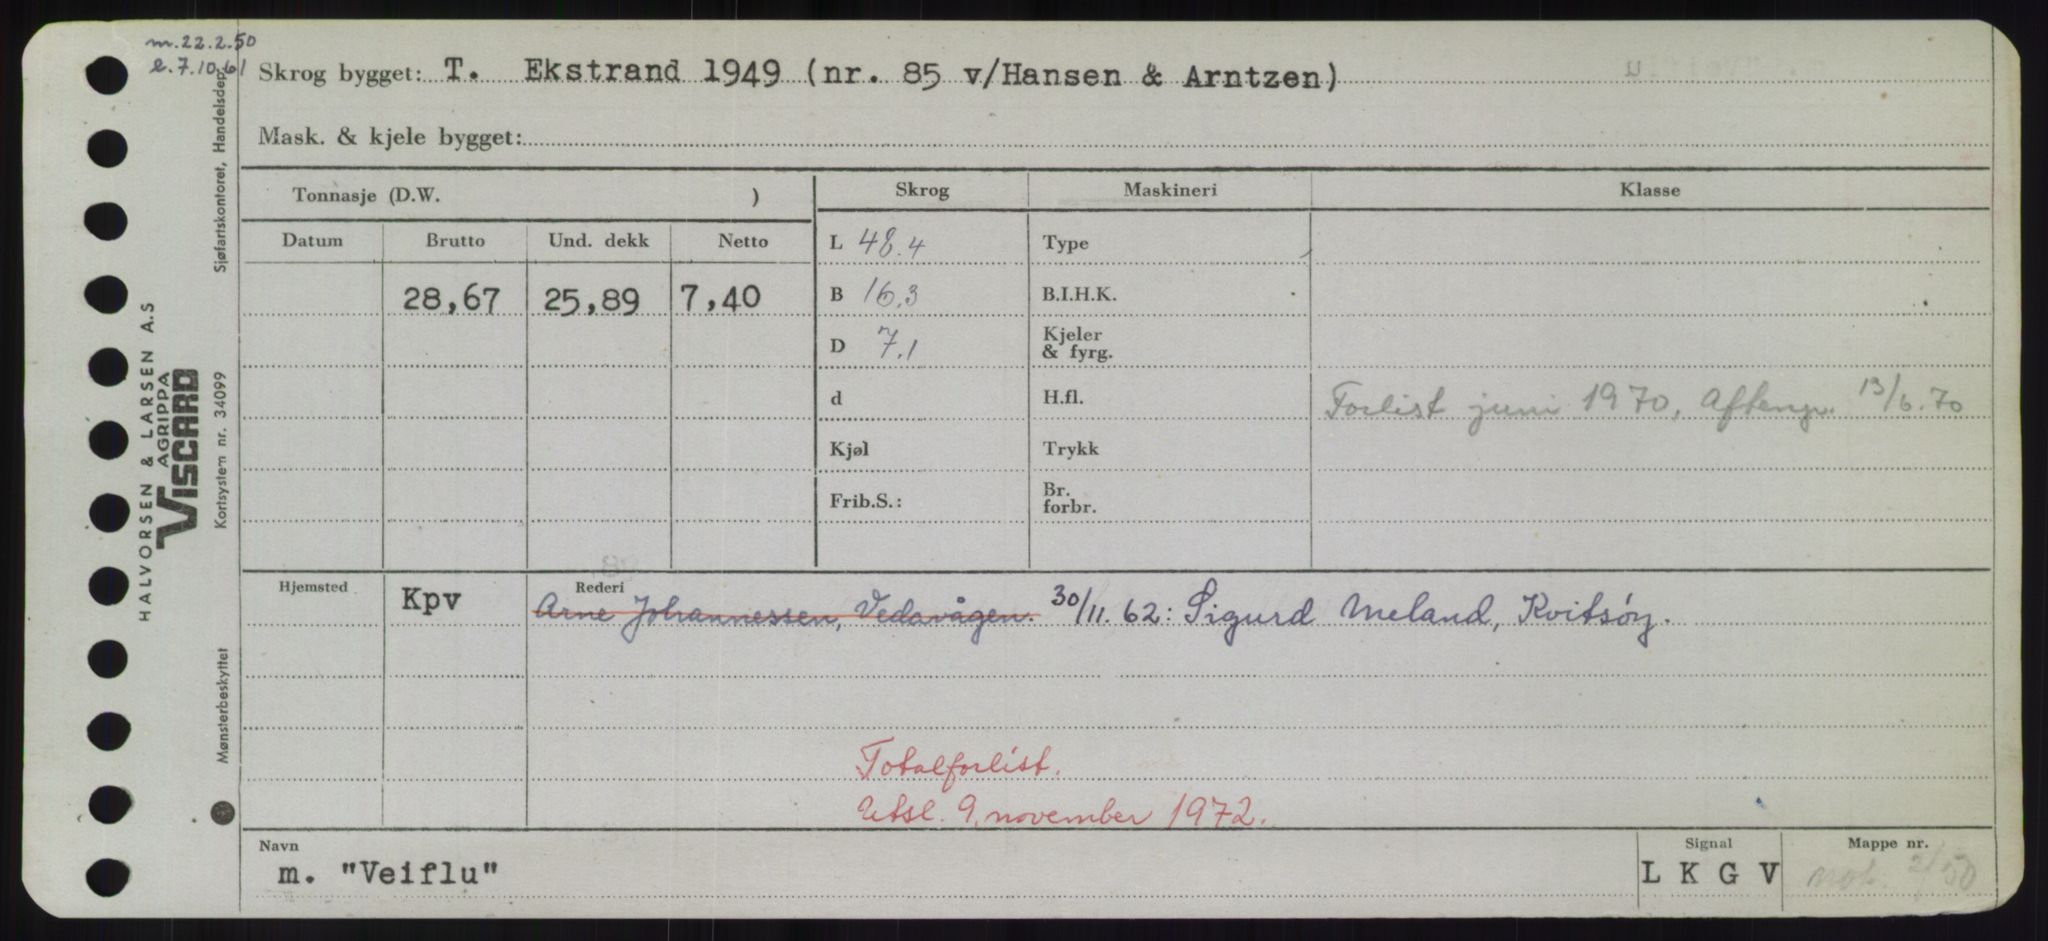 m.22.2.50
l.7.10.61
Skrog bygget: T. Ekstrand 1949 (nr. 85 v/Hansen & Arntzen)
Mask. & kjele bygget:
Tonnasje (D.W. )
Skrog Maskineri Klasse
Datum Brutto Und. dekk Netto
L 48.4 Type
28,67 25,89 7,40
B 16.3 B.I.H.K.
D 7.1 Kjeler & fyrg.
d H.fl. Forlist juni 1970, Aftenp. 13/6.70
Kjøl Trykk
Frib.S.: Br. forbr.
Hjemsted Kpv Rederi
Arne Johannessen, Vedavågen. 30/11.62: Sigurd Meland, Kvitsøy.
Totalforlist.
Utsl. 9. november 1972.
Navn Signal Mappe nr.
m. "Veiflu" L K G V 2/50
HALVORSEN & LARSEN A.S
AGRIPPA
VISCARD
Sjøfartskontoret, Handelsdep.
Kortsystem nr. 34099
Mønsterbeskyttet